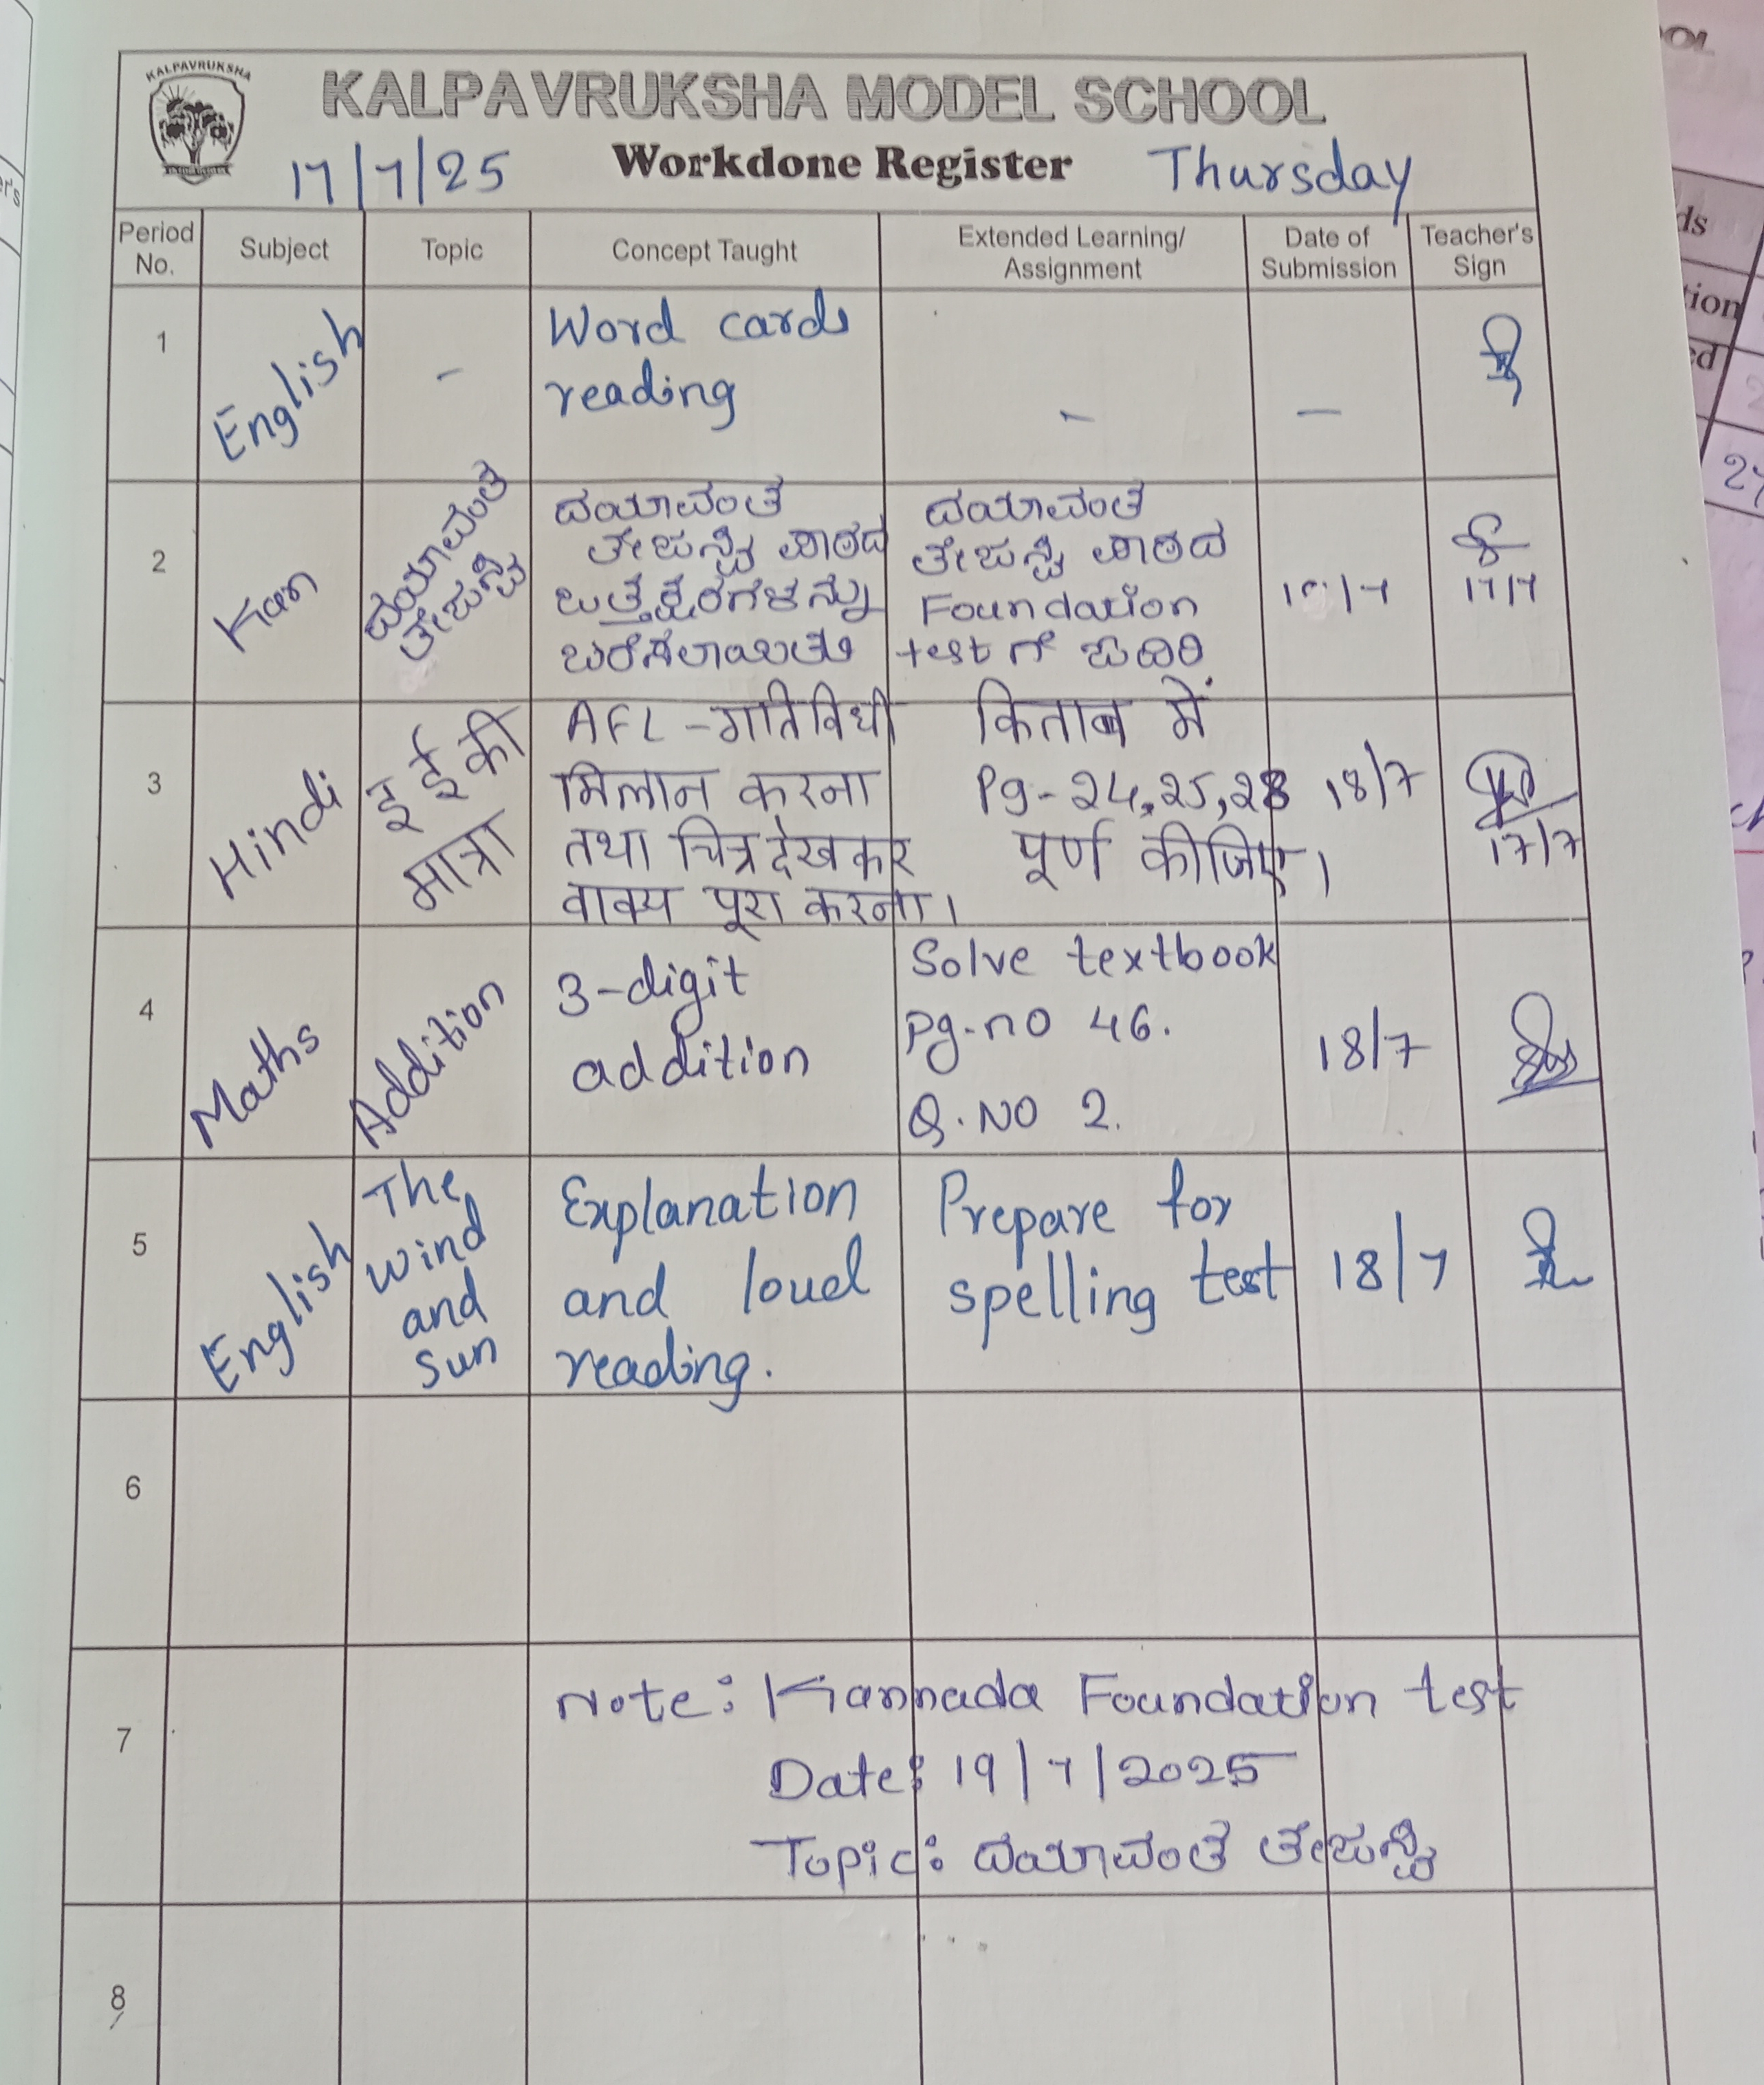 KALPAVRUKSHA
KALPAVRUKSHA MODEL SCHOOL
17/7/25 Workdone Register Thursday
Period No.
Subject
Topic
Concept Taught
Extended Learning/
Assignment
Date of
Submission
Teacher's
Sign
1
English
-
Word cards
reading
-
-
2
Kan
ದಯಾವಂತ
ತೇಜಸ್ವಿ
ದಯಾವಂತ
ತೇಜಸ್ವಿ ಪಾಠದ
ಬರೆಸಲಾಯಿತು
ದಯಾವಂತ
ತೇಜಸ್ವಿ ಪಾಠದ
Foundation
test ಗೆ ಓದಿರಿ
17/7
3
Hindi
इ ई की
मात्रा
AFL - गतिविधी
मिलान करना
तथा चित्र देखकर
वाक्य पूरा करना।
किताब में
Pg - 24, 25, 28
पूर्ण कीजिए।
18/7
17/7
4
Maths
Addition
3-digit
addition
Solve textbook
Pg.no 46.
Q.NO 2.
18/7
5
English
The
wind
and
sun
Explanation
and loud
reading.
Prepare for
spelling test
18/7
6
7
Note: Kannada Foundation test
Date: 19/7/2025
Topic: ದಯಾವಂತ ತೇಜಸ್ವಿ
8